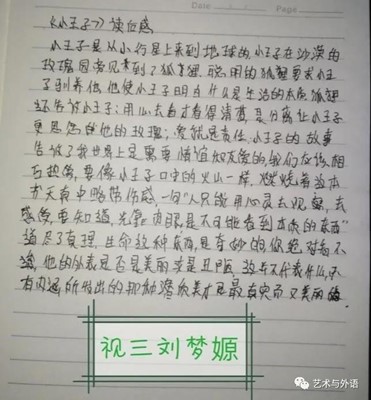 Date Page
《小王子》读后感
小王子是从小行星上来到地球的,小王子在沙漠的
玫瑰园旁见到了狐狸,聪明的狐狸要求小王
子驯养他,他使小王子明白什么是生活的本质,狐狸
还告诉小王子:用心去看才看得清楚,是分离让小王子
更思念他的玫瑰;爱就是责任,小王子的故事
告诉了我世界上是需要情谊和友爱的,我们应该相
互热爱,要像小王子口中的火山一样,燃烧着,这本
书天真中略带伤感,一句"人只能用心灵去观察,去
感悟,要知道,光靠肉眼是不可能看到本质的东西"
道尽了真理,生命这种东西,是奇妙的,你绝对看不
他的外表是否是美丽或是丑陋,这并不代表什么,
有内涵所付出的那种潜质美才是最真实而又美丽的
视三刘梦嫄
艺术与外语